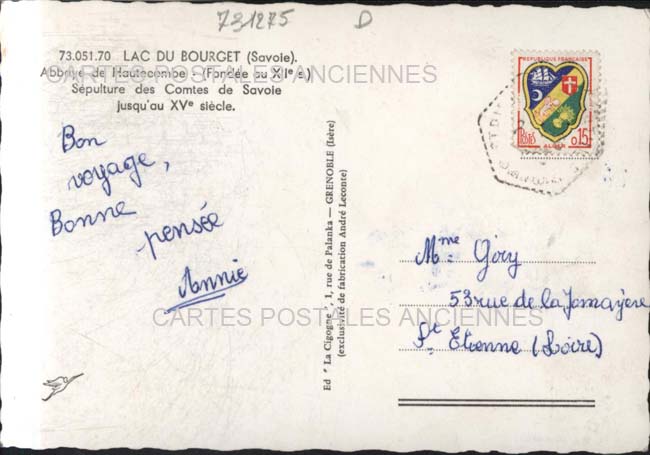 731275 D
73.051.70 LAC DU BOURGET (Savoie).
Abbaye de Hautecombe (Fondée au XIIe s.)
Sépulture des Comtes de Savoie
jusqu'au XVe siècle.
CARTES POSTALES ANCIENNES
REPUBLIQUE FRANÇAISE
POSTES ALGER 0,15
Bon
voyage,
Bonne
pensée
Annie
Ed "La Cigogne", 1, rue de Palanka — GRENOBLE (Isère)
(exclusivité de fabrication André Leconte)
Mme Gory
53 rue de la Jomayère
St Etienne (Loire)
CARTES POSTALES ANCIENNES